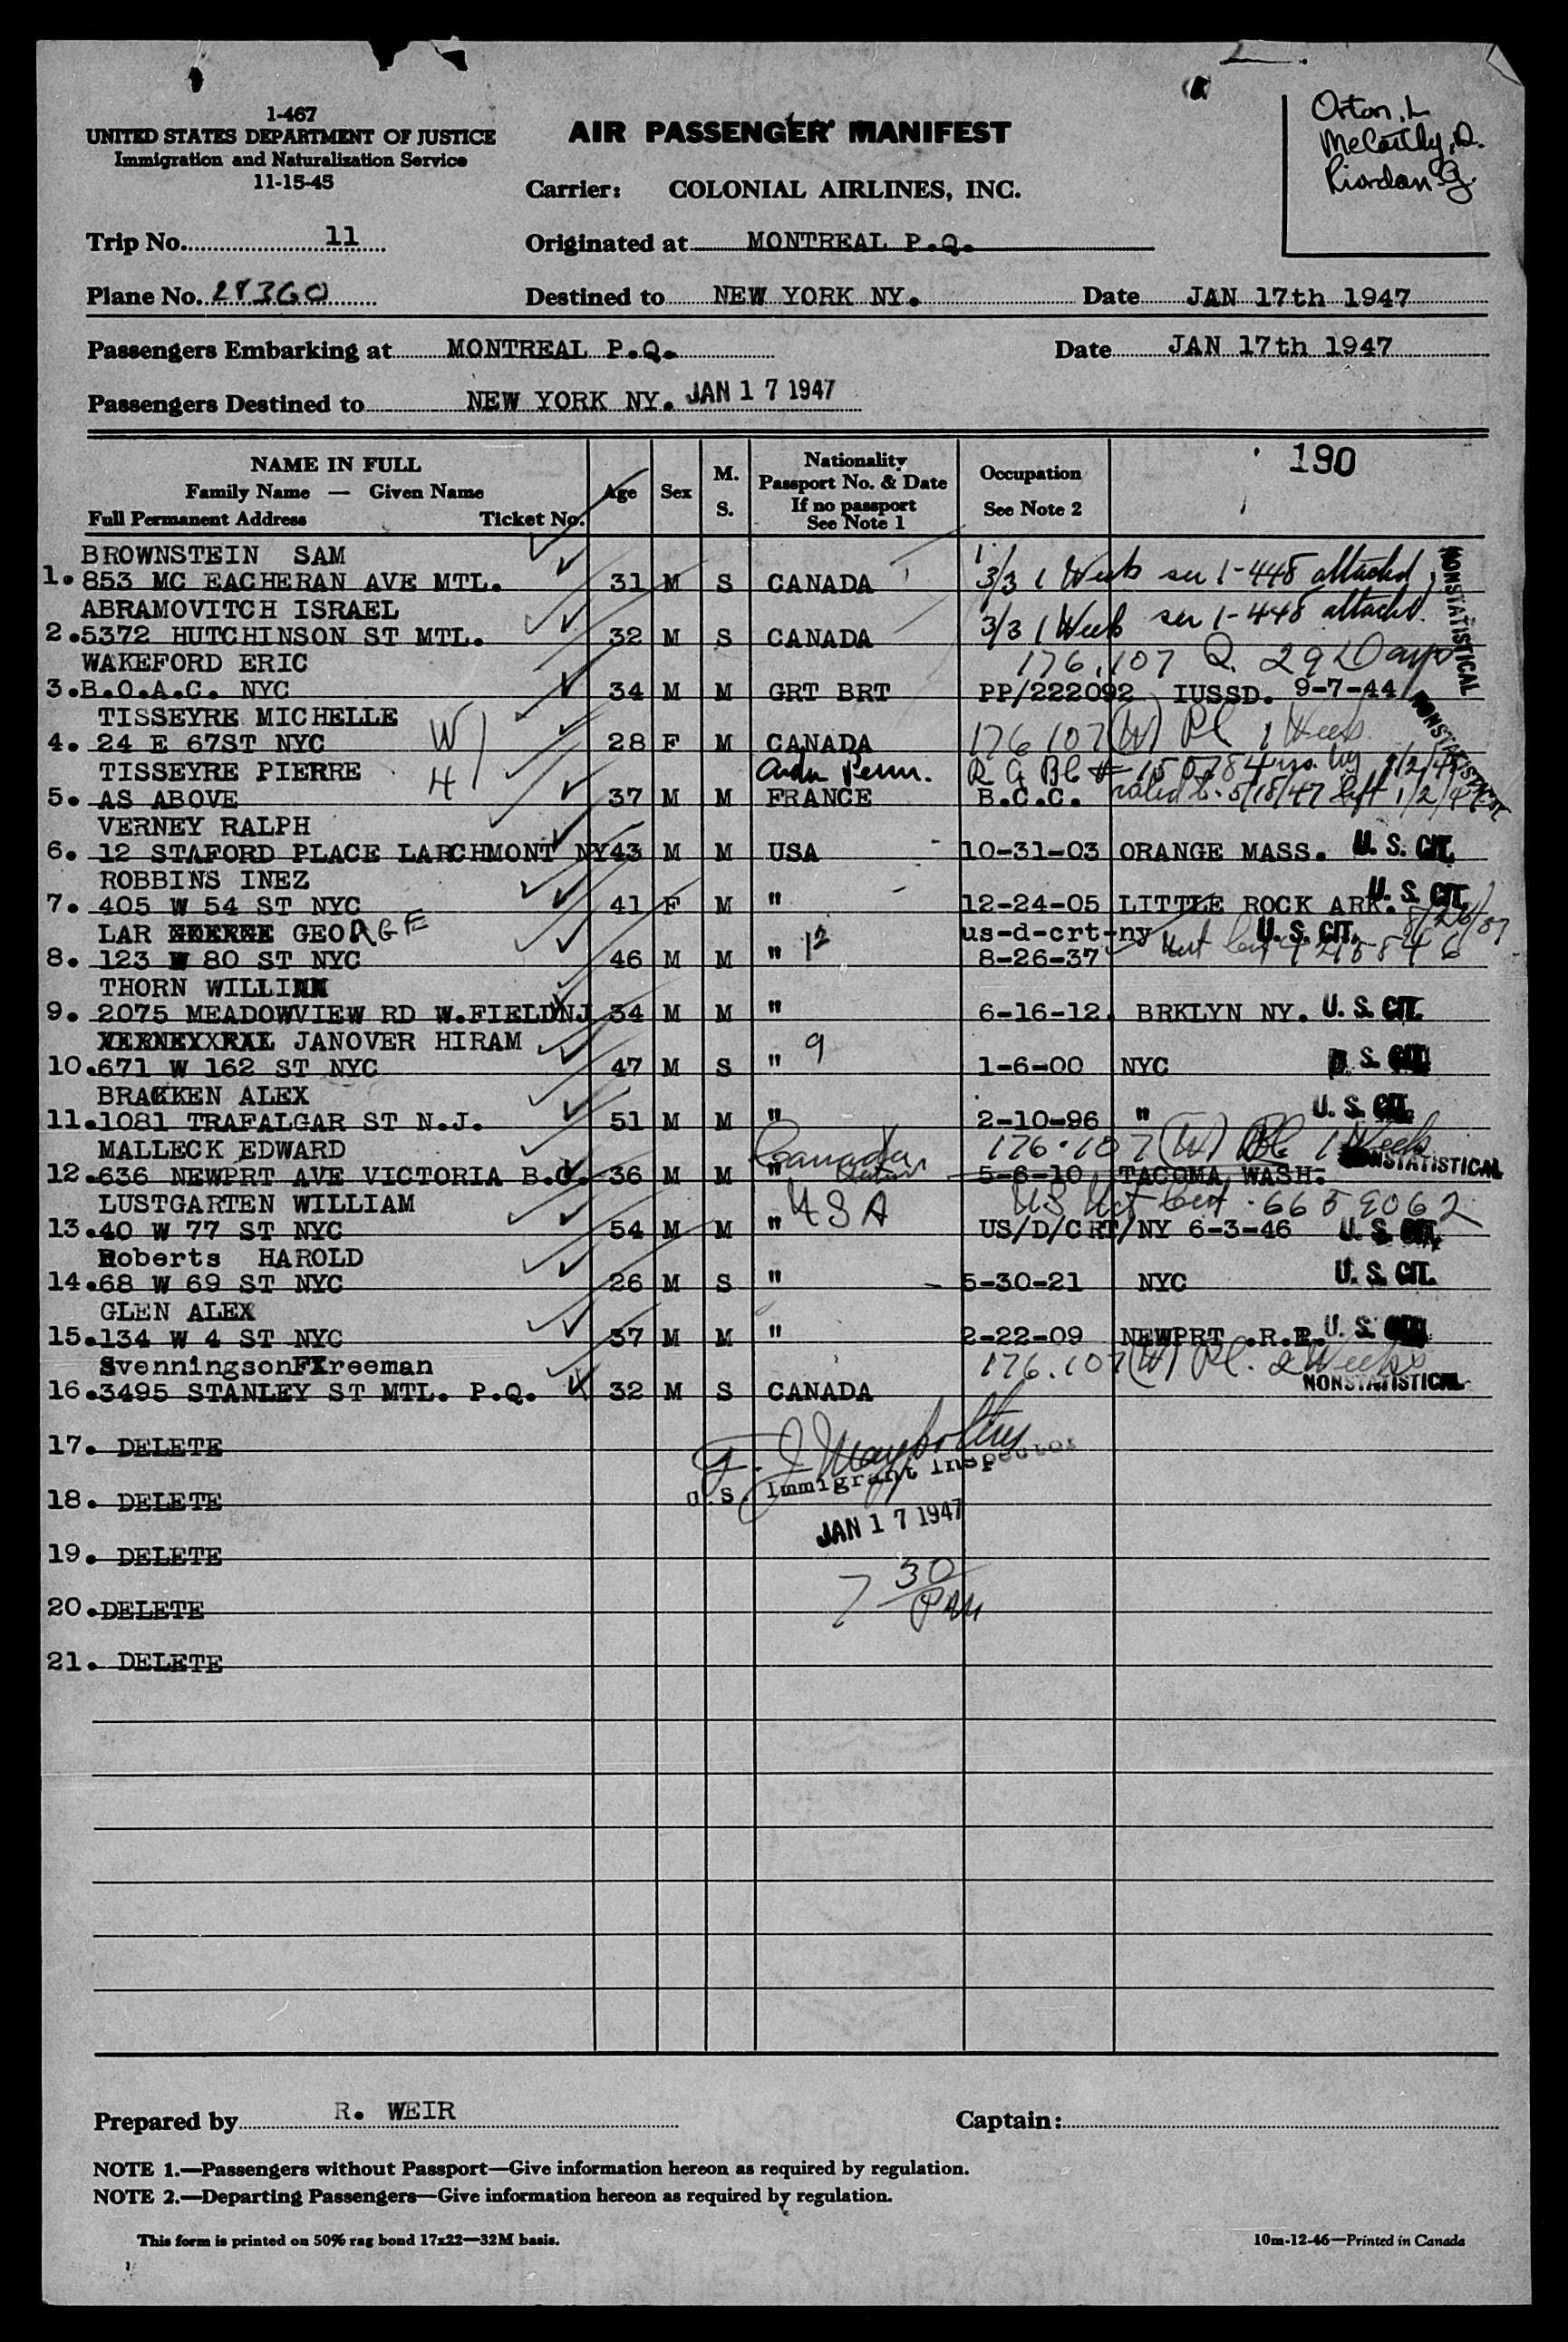 Orton, L
McCarthy, D.
Riordan G.
1-467
UNITED STATES DEPARTMENT OF JUSTICE
Immigration and Naturalization Service
11-15-45
AIR PASSENGER MANIFEST
Carrier: COLONIAL AIRLINES, INC.
Trip No. 11
Originated at MONTREAL P.Q.
Plane No. 28360
Destined to NEW YORK NY.
Date JAN 17th 1947
Passengers Embarking at MONTREAL P.Q.
Date JAN 17th 1947
Passengers Destined to NEW YORK NY. JAN 17 1947
NAME IN FULL
Family Name — Given Name
Full Permanent Address Ticket No.
Age
Sex
M.
S.
Nationality
Passport No. & Date
If no passport
See Note 1
Occupation
See Note 2
190
BROWNSTEIN SAM
1. 853 MC EACHERAN AVE MTL. 31 M S CANADA 3/3 1 Week see 1-448 attached NONSTATISTICAL
ABRAMOVITCH ISRAEL
2. 5372 HUTCHINSON ST MTL. 32 M S CANADA 3/3 1 Week see 1-448 attached.
WAKEFORD ERIC 176.107 Q. 29 Days
3. B.O.A.C. NYC 34 M M GRT BRT PP/222092 IUSSD. 9-7-44
TISSEYRE MICHELLE W
4. 24 E 67ST NYC 28 F M CANADA 176 107 (W) Pl 1 Week NONSTATISTICAL
TISSEYRE PIERRE H
5. AS ABOVE 37 M M FRANCE B.C.C. 5/18/47 left 1/2/47
VERNEY RALPH
6. 12 STAFORD PLACE LARCHMONT NY 43 M M USA 10-31-03 ORANGE MASS. U. S. CIT.
ROBBINS INEZ
7. 405 W 54 ST NYC 41 F M " 12-24-05 LITTLE ROCK ARK. U. S. CIT.
LAR GEORGE us-d-crt-ny U. S. CIT.
8. 123 W 80 ST NYC 46 M M " 12 8-26-37
THORN WILLI
9. 2075 MEADOWVIEW RD W.FIELDNJ 34 M M " 6-16-12. BRKLYN NY. U. S. CIT.
JANOVER HIRAM 9
10. 671 W 162 ST NYC 47 M S " 1-6-00 NYC U. S. CIT.
BRACKEN ALEX
11. 1081 TRAFALGAR ST N.J. 51 M M " 2-10-96 " U. S. CIT.
MALLECK EDWARD Canada 176.107 (W) Pl 1 Week
12. 636 NEWPRT AVE VICTORIA B.C. 36 M M " 5-6-10 TACOMA WASH. NONSTATISTICAL
LUSTGARTEN WILLIAM USA US Nat Cert. 6659062
13. 40 W 77 ST NYC 54 M M " US/D/CRT/NY 6-3-46 U. S. CIT.
Roberts HAROLD
14. 68 W 69 ST NYC 26 M S " 5-30-21 NYC U. S. CIT.
GLEN ALEX
15. 134 W 4 ST NYC 37 M M " 2-22-09 NEWPRT .R.I. U. S. CIT.
Svenningson Freeman 176.107 (W) Pl. 2 Weeks
16. 3495 STANLEY ST MTL. P.Q. 32 M S CANADA NONSTATISTICAL
17. DELETE
U.S. Immigrant Inspector
18. DELETE
JAN 17 1947
19. DELETE
7 30 PM
20. DELETE
21. DELETE
Prepared by R. WEIR
Captain:
NOTE 1.—Passengers without Passport—Give information hereon as required by regulation.
NOTE 2.—Departing Passengers—Give information hereon as required by regulation.
This form is printed on 50% rag bond 17x22—32M basis.
10m-12-46—Printed in Canada